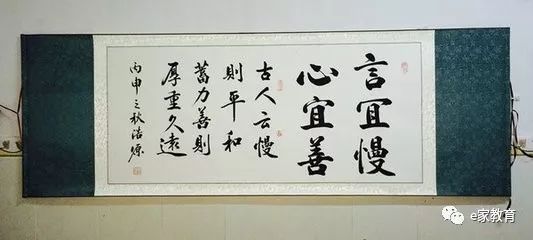 言宜慢
心宜善
古人云慢
則平和
蓄力善則
厚重久遠
丙申之秋浩源
e家教育